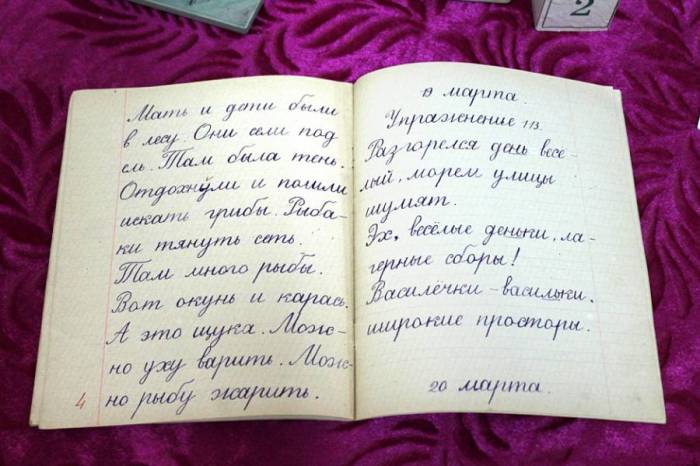 Мать и дети были
в лесу. Они сели под
ель. Там была тень.
Отдохнули и пошли
искать грибы. Рыба-
ки тянуть сеть.
Там много рыбы.
Вот окунь и карась.
А это щука. Мож-
но уху варить. Мож-
но рыбу жарить.
4
19 марта.
Упражнение 113.
Разгорелся день весё-
лый, морем улицы
шумят.
Эх, весёлые деньки, ла-
герные сборы!
Василёчки - васильки.
широкие просторы.
20 марта.
2